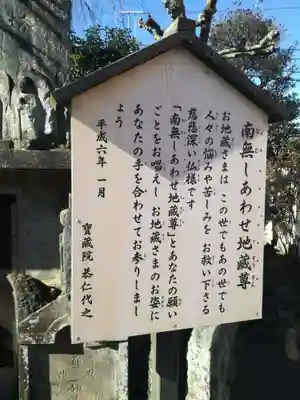 南無しあわせ地蔵尊
お地蔵さまは この世でもあの世でも
人々の悩みや苦しみを お救い下さる
慈悲深い仏様です
「南無しあわせ地蔵尊」とあなたの願い
ごとをお唱えし お地蔵さまのお姿に
あなたの手を合わせてお参りしまし
ょう
平成六年 一月
寶蔵院 恭仁代之